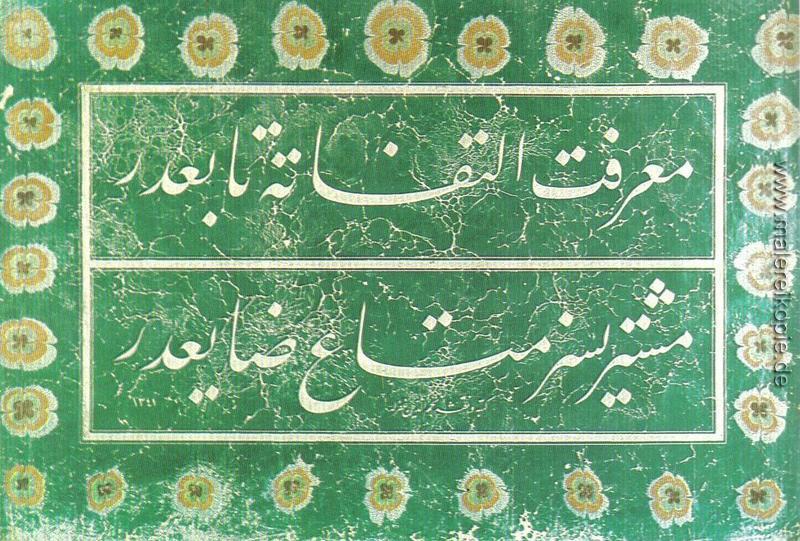 معرفت التفاته تابعدر
مشتریسز متاع ضایعدر
١٣٤١
www.malereikopie.de